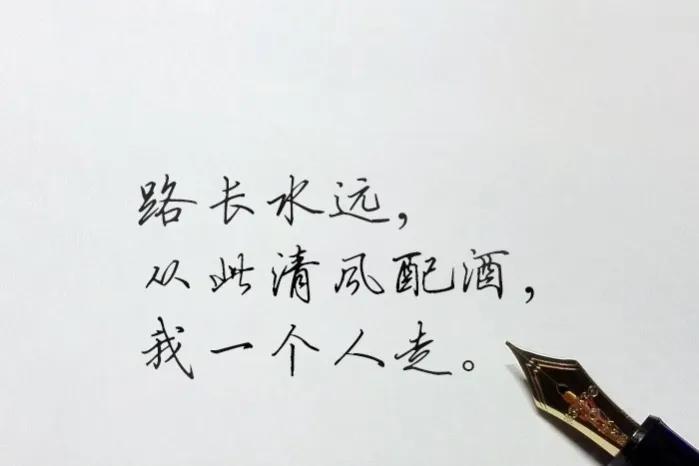 路长水远，
从此清风配酒，
我一个人走。